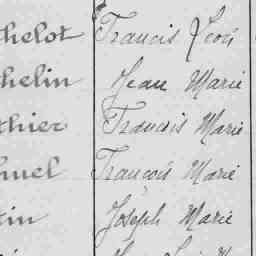 helot Francis Léon
helin Jean Marie
thier François Marie
huel François Marie
tin Joseph Marie